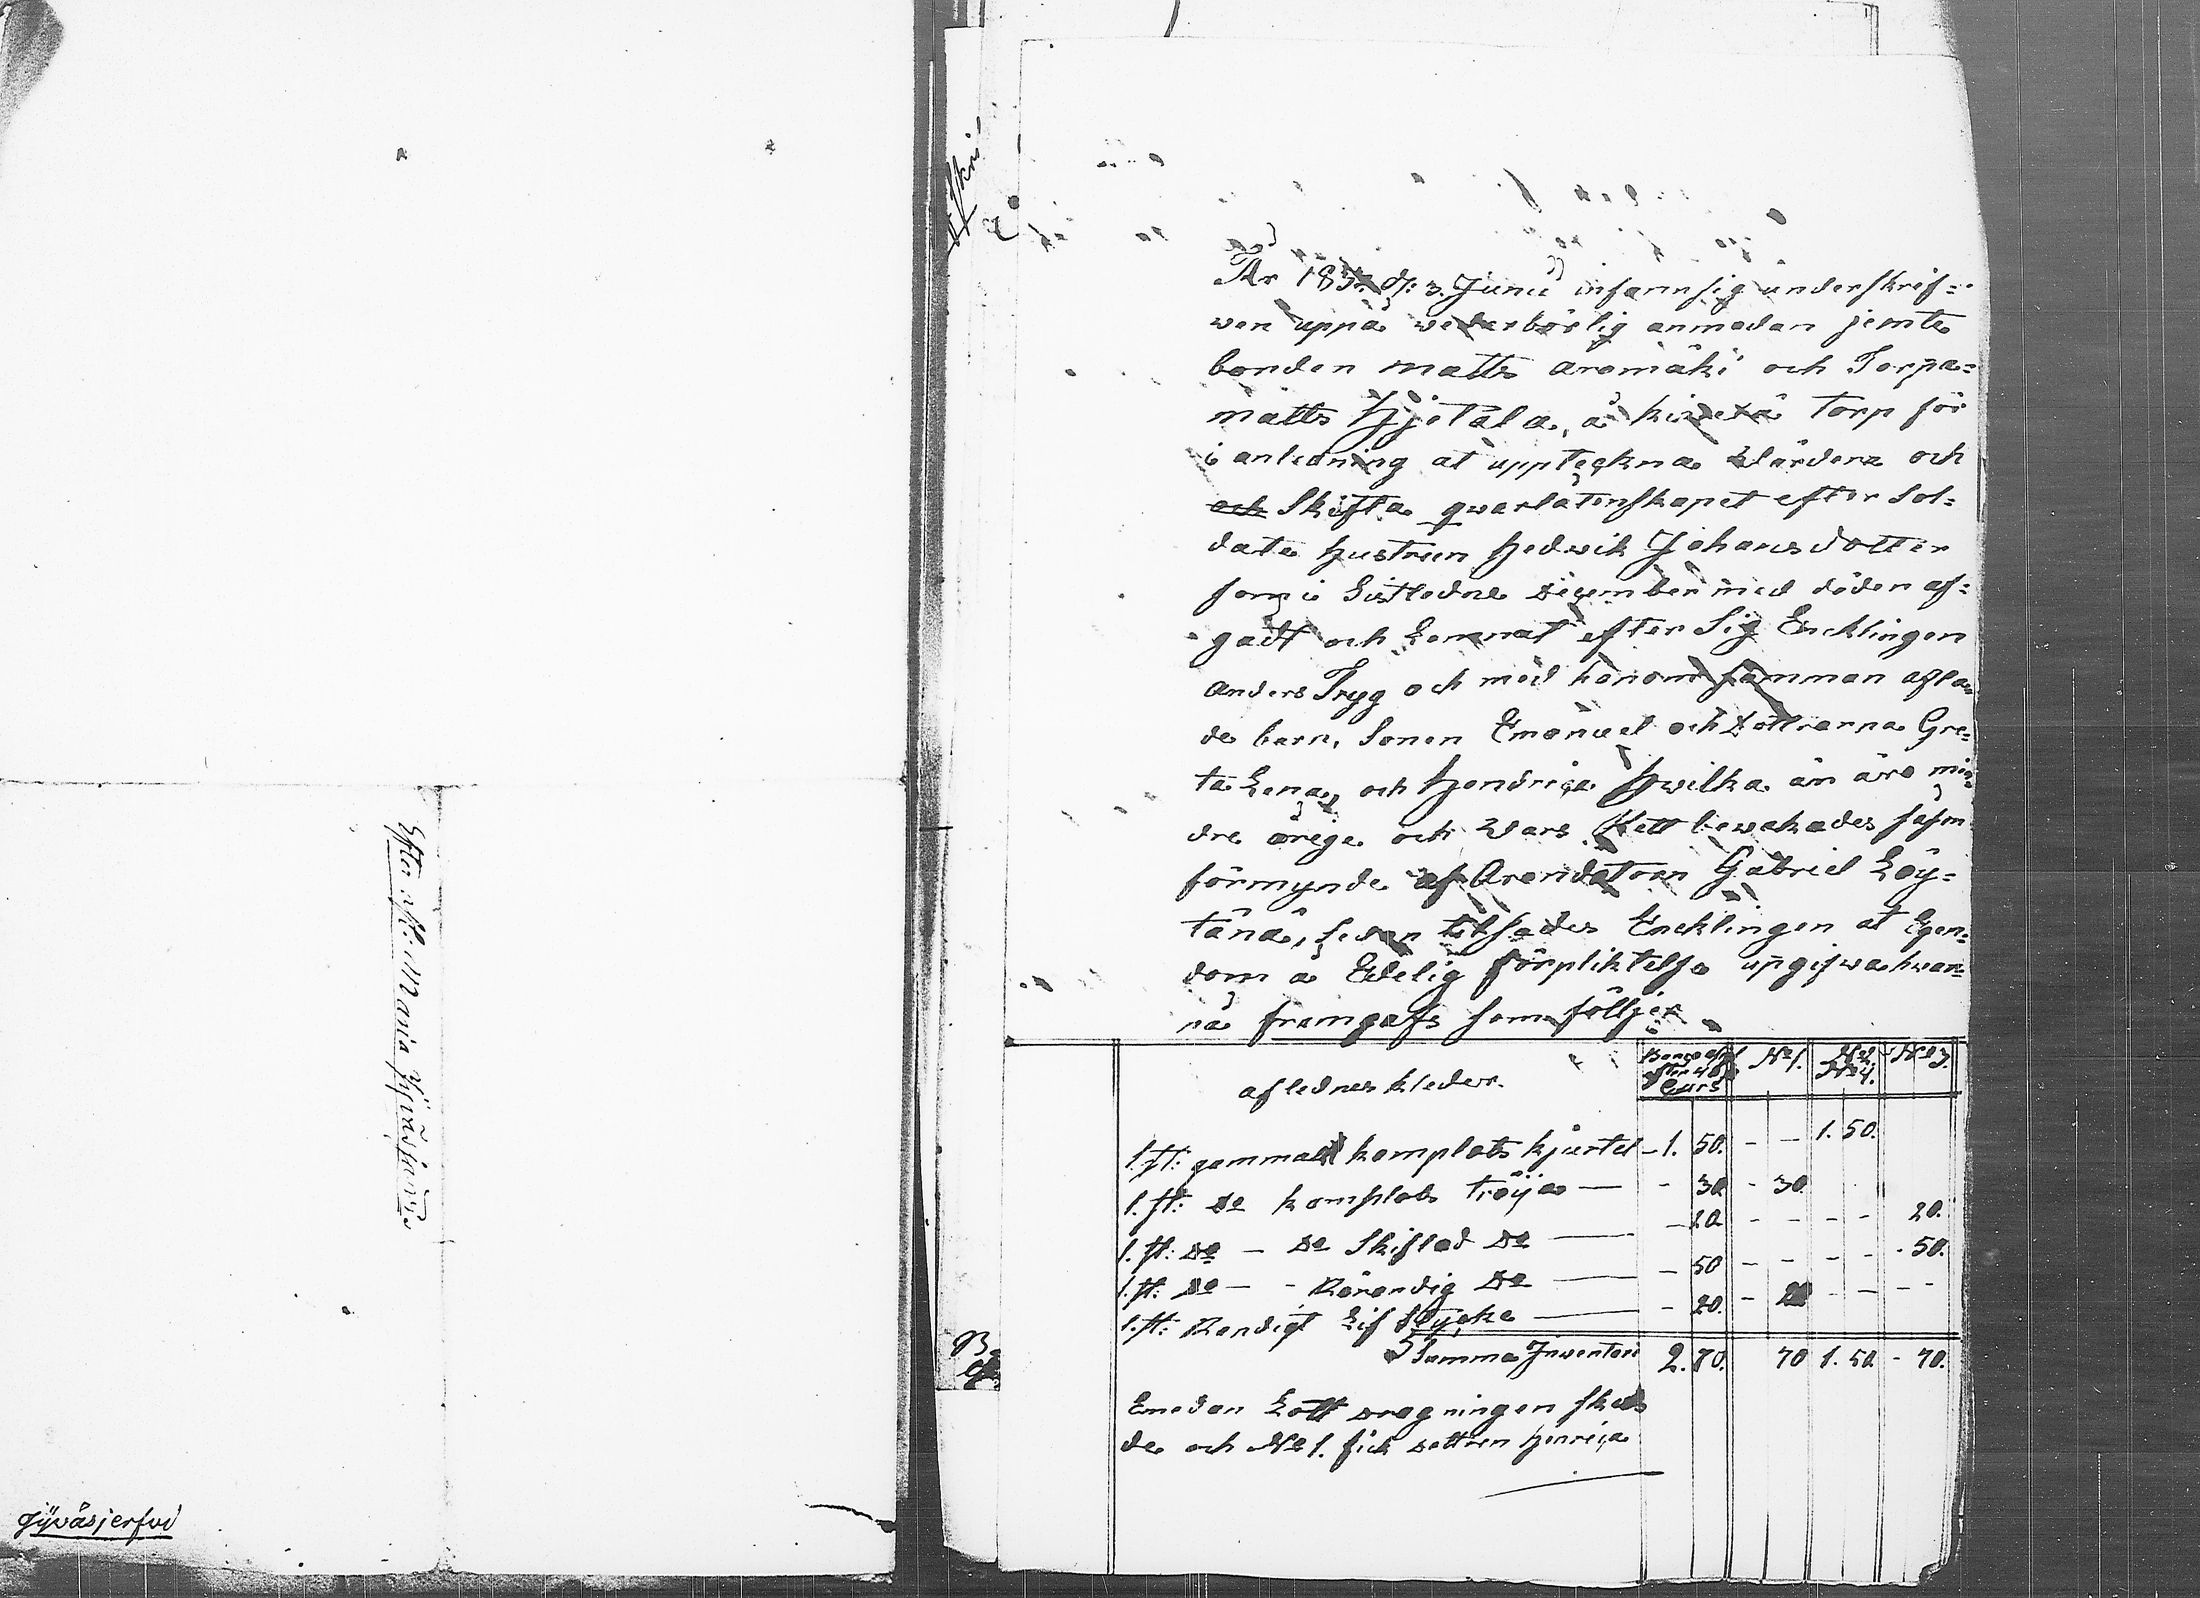 Efter afl: Maria Hyvösen
Jyväsjerfvi
Afskri
År 183 d: 3. Junii infann sig underskrif=
wen uppå wederbörlig anmodan jemte
bonden Matts Aromäki och Torpa=
Matts Hjetala, å torp för
i anledning at uppteckna Wärdera och
och Skifta qwarlåtenskapet efter Sol=
date hustrun Hedwik Johansdotter
som i Sistledne December med döden af=
gådt och Lemnat efter Sig Encklingen
Anders Tryg och med honom samman afla=
de barn, Sonen Emanuel och Dottrarna Gre=
ta Lena, och Hendrica Hwilka än äro min=
dre årige och Wars Rett bewakades såsom
förmynde af Arendatorn Gabriel Löy=
tänä, sedan tilsades Encklingen at Egen=
dom å Edelig förpliktelse upgifwa hwar=
på framgafs som följer
aflednes kleder.
Banco
Curs
N:o 1.
N:o 2.
N:o 4.
N:o 3.
1. st: gammalt komplots kjurtel - 1. 50. - - 1. 50.
1. st: D:o komplots tröija - - 30 - 30
1. st: D:o - D:o Skiftad D:o - 20 - - - - 20.
1. st: D:o - - Rörandig D:o - 50 - - - - 50.
1. st: Randigt Lif Stycke - 20. - - - - -
Summa Inventari 2. 70. 70 1. 50 - 70.
Emedan Lott dragningen sked
de och N:o 1. fick dottren Henrica